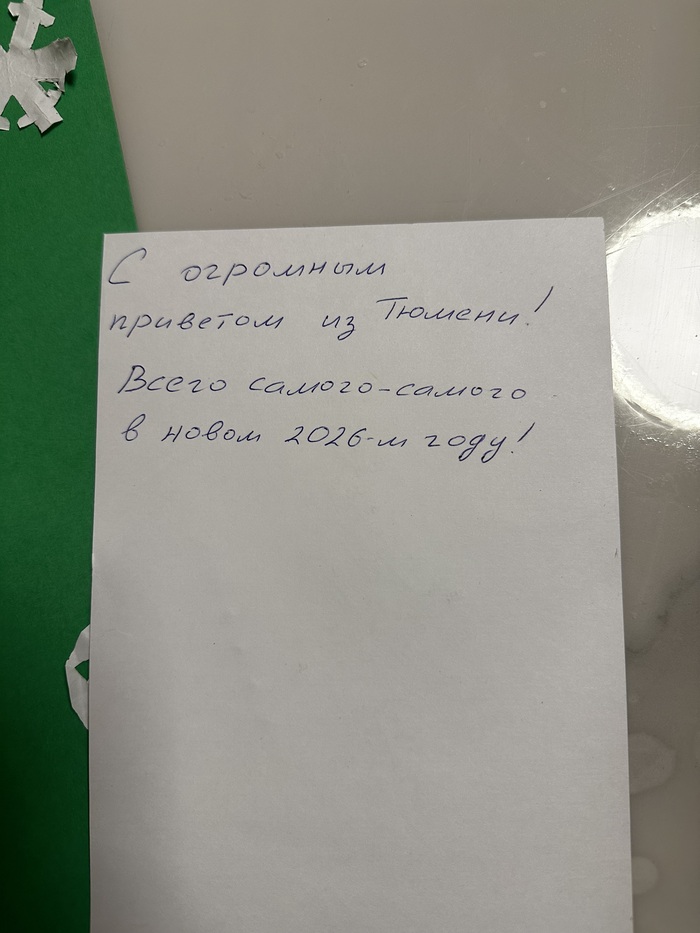 С огромным
приветом из Тюмени!
Всего самого-самого
в новом 2026-м году!